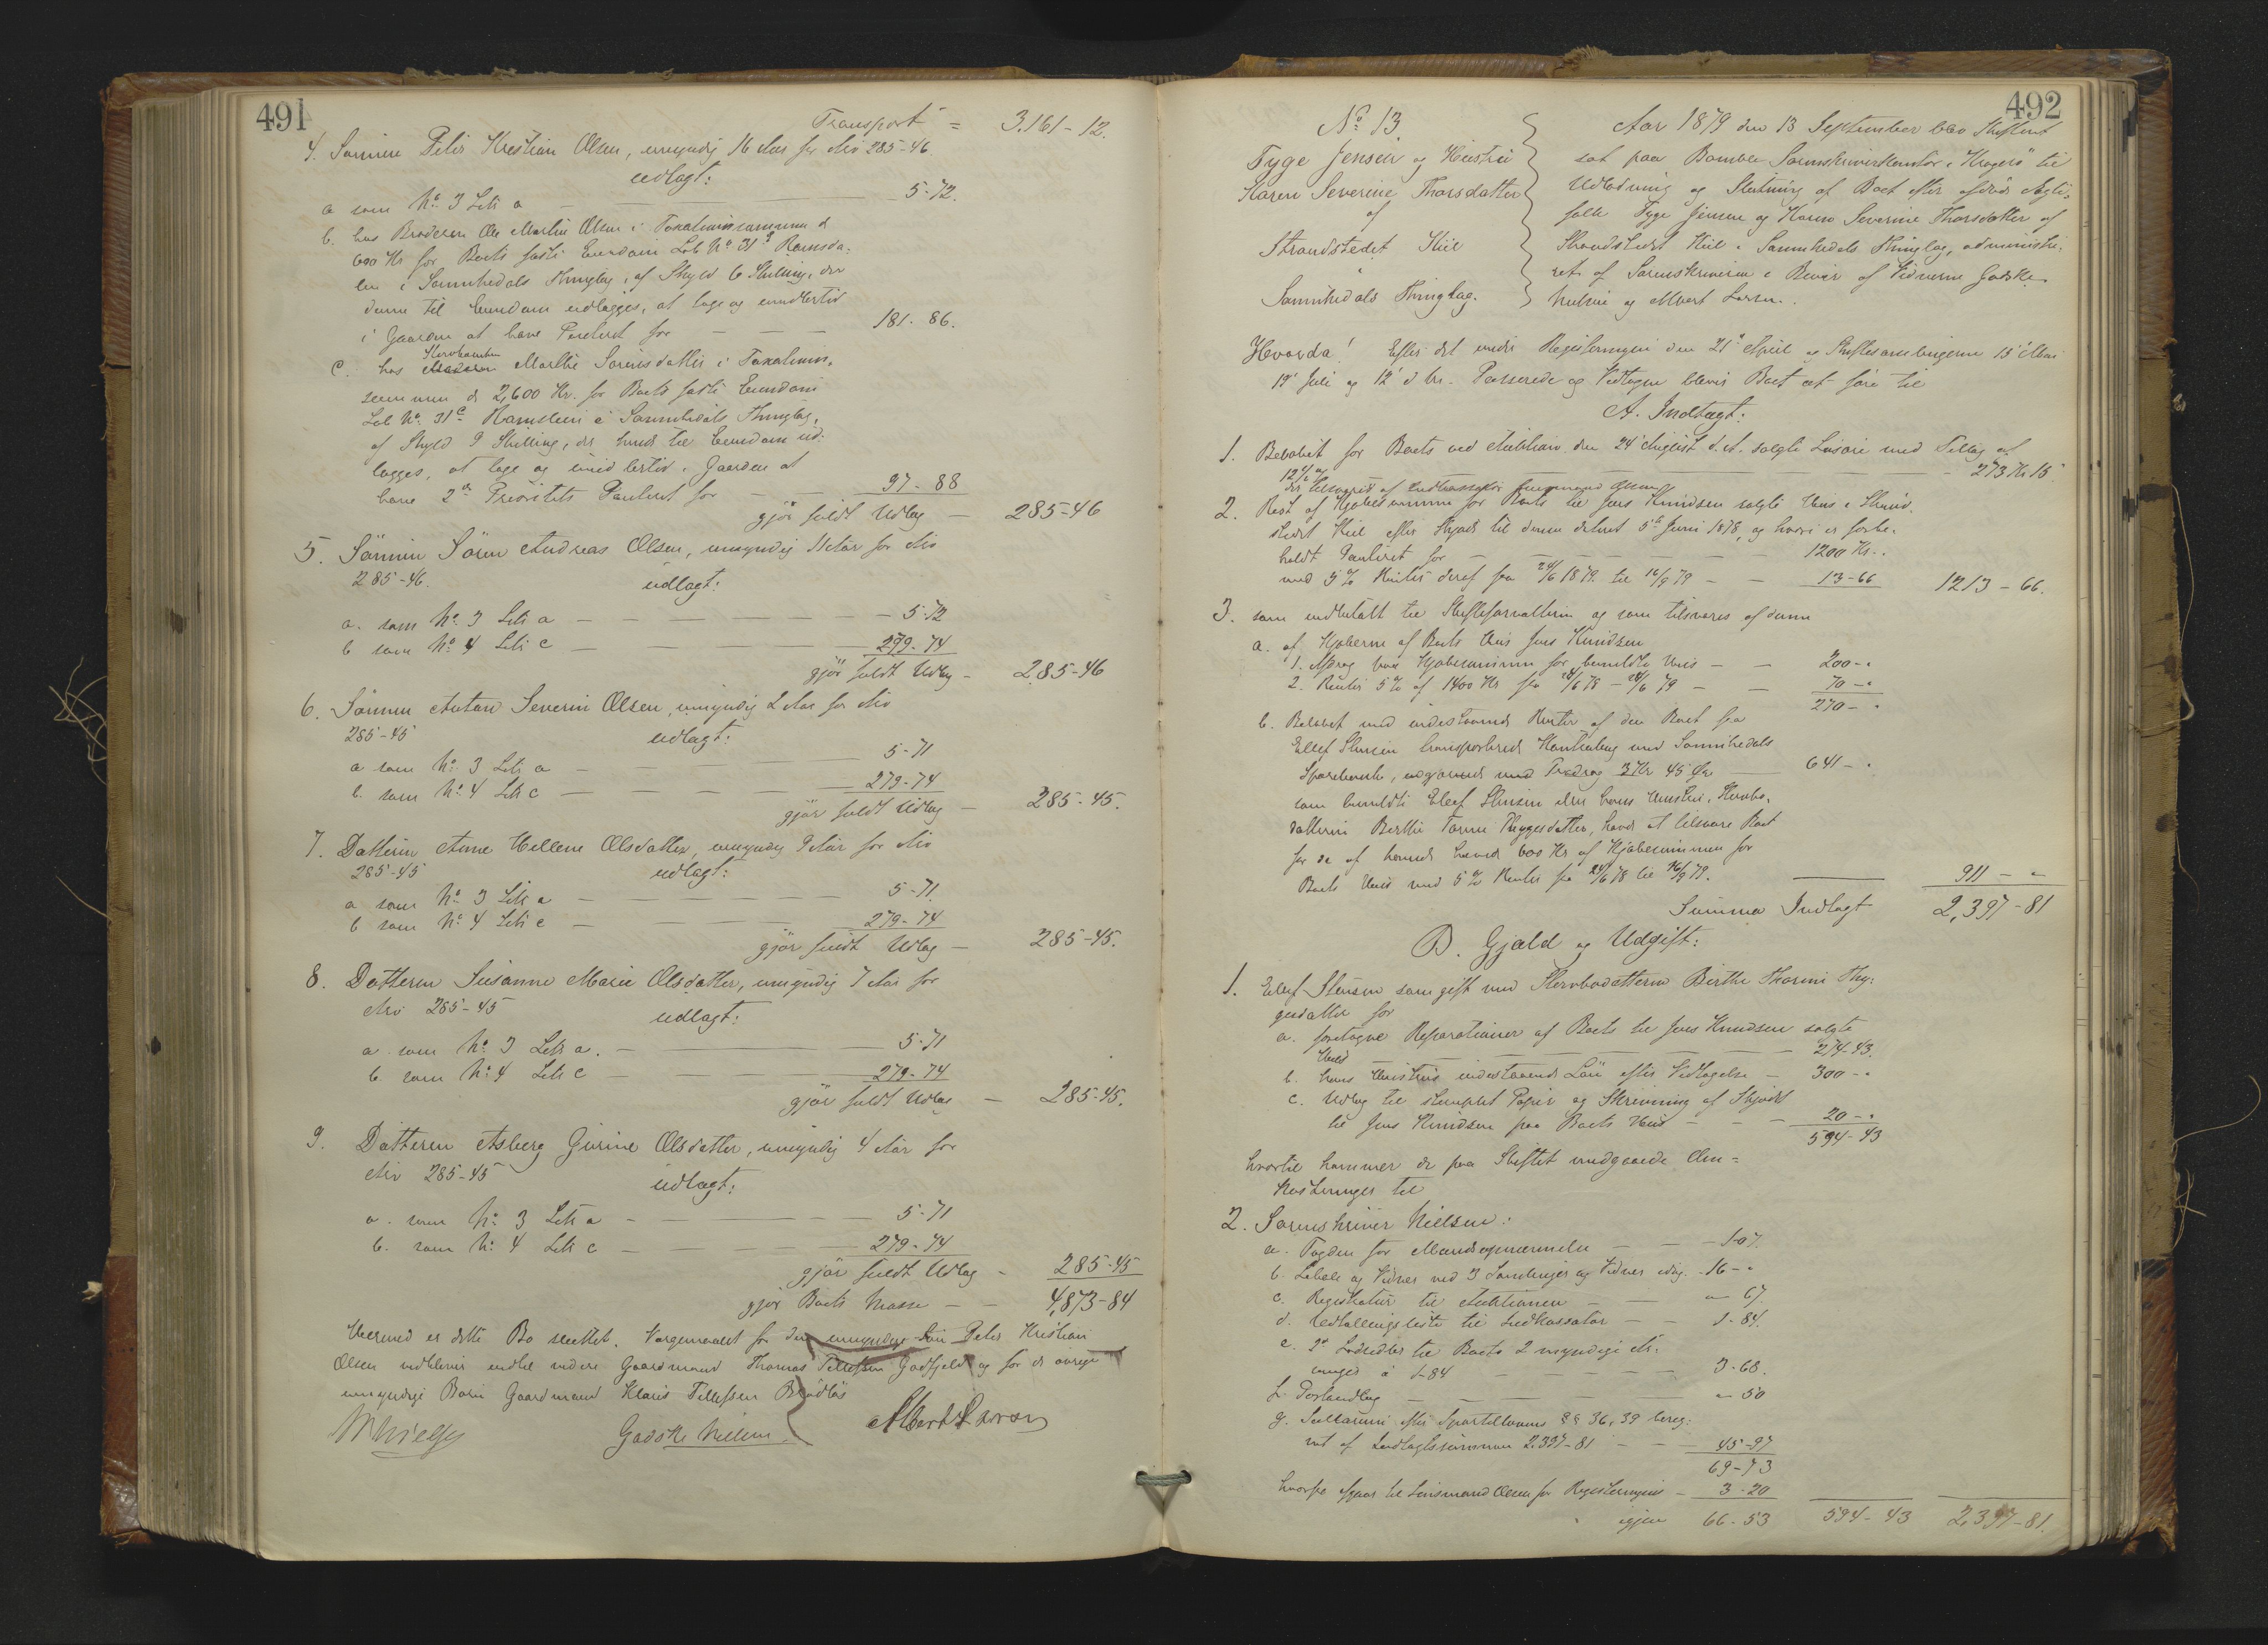 491
Transport = 3.161-12.
4. Sønnen Peter Kristian Olsen, umyndig 16 Aar før Arv 285-46.
udlagt:
a som No 3 Litr a — 5-72.
b. hos Broderen Ole Martin Olsen i Taxationssummen
600 Kr for Boets faste Eiendom Løb No 31 Ramsda-
len i Sannikedals Thinglag, af Skyld 6 Skilling, der
denne til Eiendom udlægges, at tage og imidlertid
i Gaarden at have Panteret for — 181-86.
c. hos Stervboenken Marthe Sørensdatter i Taxations-
summen 2,600 Kr. for Boets faste Eiendom
Løb No 31 c Ramsdalen i Sannikedals Thinglag,
af Skyld 9 Skilling, der hende til Eiendom ud-
lægges, at tage og imidlertid i Gaarden at
have 2den Prioritets Panteret for — 97-88
gjør fuldt Udlæg — 285-46
5. Sønnen Søren Andreas Olsen, umyndig 11 Aar for Arv
285-46. udlagt:
a. som No 3 Litr a — 5-72
b som No 4 Litr c — 279-74
gjør fuldt Udlæg - 285-46
6. Sønnen Anton Severin Olsen, umyndig 2 Aar for Arv
285-45 udlagt:
a som No 3 Litr a — 5-71
b. som No 4 Litr c — 279-74
gjør fuldt Udlæg — 285-45.
7. Datteren Anne Hellene Olsdatter, umyndig 9 Aar for Arv
285-45 udlagt:
a som No 3 Litr a — 5-71.
b som No 4 Litr c — 279-74
gjør fuldt Udlæg — 285-45.
8. Datteren Susanne Marie Olsdatter, umyndig 7 Aar for
Arv 285-45 udlagt:
a som No 3 Litr a. — 5-71
b. som No 4 Litr c — 279-74
gjør fuldt Udlæg — 285-45.
9. Datteren Asberg Gurine Olsdatter, umyndig 4 Aar for
Arv 285-45 udlagt:
a. som No 3 Litr a — 5-71
b. som No 4 Litr c — 279-74
gjør fuldt Udlæg - 285-45
gjør Boets Masse — 4,873-84
Hermed er dette Bo sluttet. Værgemaalet for den umyndige Søn Peter Kristian
Olsen udbliver indtil videre Gaardmand Thomas Tellefsen Godfjeld og for de øvrige
umyndige Børn Gaardmand Klaus Tellefsen Brødløs
Godske Nielsen. Albert Larsen
492
No 13.
Tyge Jensen og Hustru
Karen Severine Thorsdatter
af
Strandstedet Kiil
i
Sannikedals Thinglag.
Aar 1879 den 13 September blev Skifteret
sat paa Bamble Sorenskriverkontor i Kragerø til
Udlodning og Slutning af Boet efter afdøde Ægte-
folk Tyge Jensen og Karen Severine Thorsdatter af
Strandstedet Kiil i Sannikedals Thinglag, administre-
ret af Sorenskriveren i Overvær af Vidnerne Godske
Nielsen og Albert Larsen.
Hvorda! Efter det under Registeringen den 21de April og Skiftesamlingerne 13de Mai
12te Juli og 12te d. M. Passerede og Vedtagne bliver Boet at føre til
A. Indtægt:
1. Beløbet for Boets ved Auktion den 24de August d. A. solgte Løsøre med Tillæg af
12% — 273 Kr 15
2. Rest af Kjøbesummen for Boets til Jens Knudsen solgte Huus i Strand-
stedet Kiil efter Skjøde til denne dateret 5te Juni 1878, og hvori er forbe-
holdt Panteret for — 1200 Kr -
med 5% Renter deraf fra 24/6 1879 til 16/9 79 — 13-66 1213-66.
3. som indbetalt til Skifteforvalteren og som tilsvares af denne
a. af Kjøberen af Boets Huus Jens Knudsen
1. Afdrag paa Kjøbesummen for bemeldte Huus — 200-"
2. Renter 5% af 1400 Kr fra 24/6 78 - 24/6 79 — 70-"
270-"
b. Beløbet med indestaaende Renter af den Boet fra
Ellef Stensen transporterede Kontrabog med Sannikedals
Sparebank, udgjørende med Fradrag 3 Kr 45 Øre — 641-"
som bemeldte Ellef Stensen eller hans Hustru, Stervbo-
datteren Berthe Tomine Thygesdatter, havde at tilsvare Boet
for de af hende hævede 600 Kr af Kjøbesummen for
Boets Huus med 5% Renter fra 24/6 78 til 16/9 79. — 911-"
Summa Indtægt 2,397-81
B. Gjæld og Udgift:
1. Ellef Stensen som gift med Stervbodatteren Birthe Thomine Thy-
gesdatter for
a. foretagne Reparationer af Boets til Jens Knudsen solgte
Huus — 274-43.
b. hans Hustrus indestaaende Løn efter Vedtagelse — 300-"
c. Udlæg til stemplet Papir og Skrivning af Skjødet
til Jens Knudsen paa Boets Huus — 20-"
594-43
hvortil kommer de paa Skiftet medgaaede Om-
kostninger til
2. Sorenskriver Nielsen:
a. Fogden for Mandsopnævnelse — 1-07.
b. Lokale og Vidner ved 3 Samlinger og Vidner idag - 16-"
c. Registratur til Auktionen — " 67
d. Udtællingsliste til Indkassator — 1-84.
e. 2de Lodsedler til Boets 2 myndige Ar-
vinger à 1-84 — 3-68.
f. Postindlæg — " 50
g. Sallarium efter Sportellovens §§ 36, 39 bereg-
net af Indtægtssummen 2,397-81 — 45-97
69-73
hvorfra afgaar til Lensmand Olsen for Registeringen — 3-20
igjen 66-53 594-43 2,397-81.